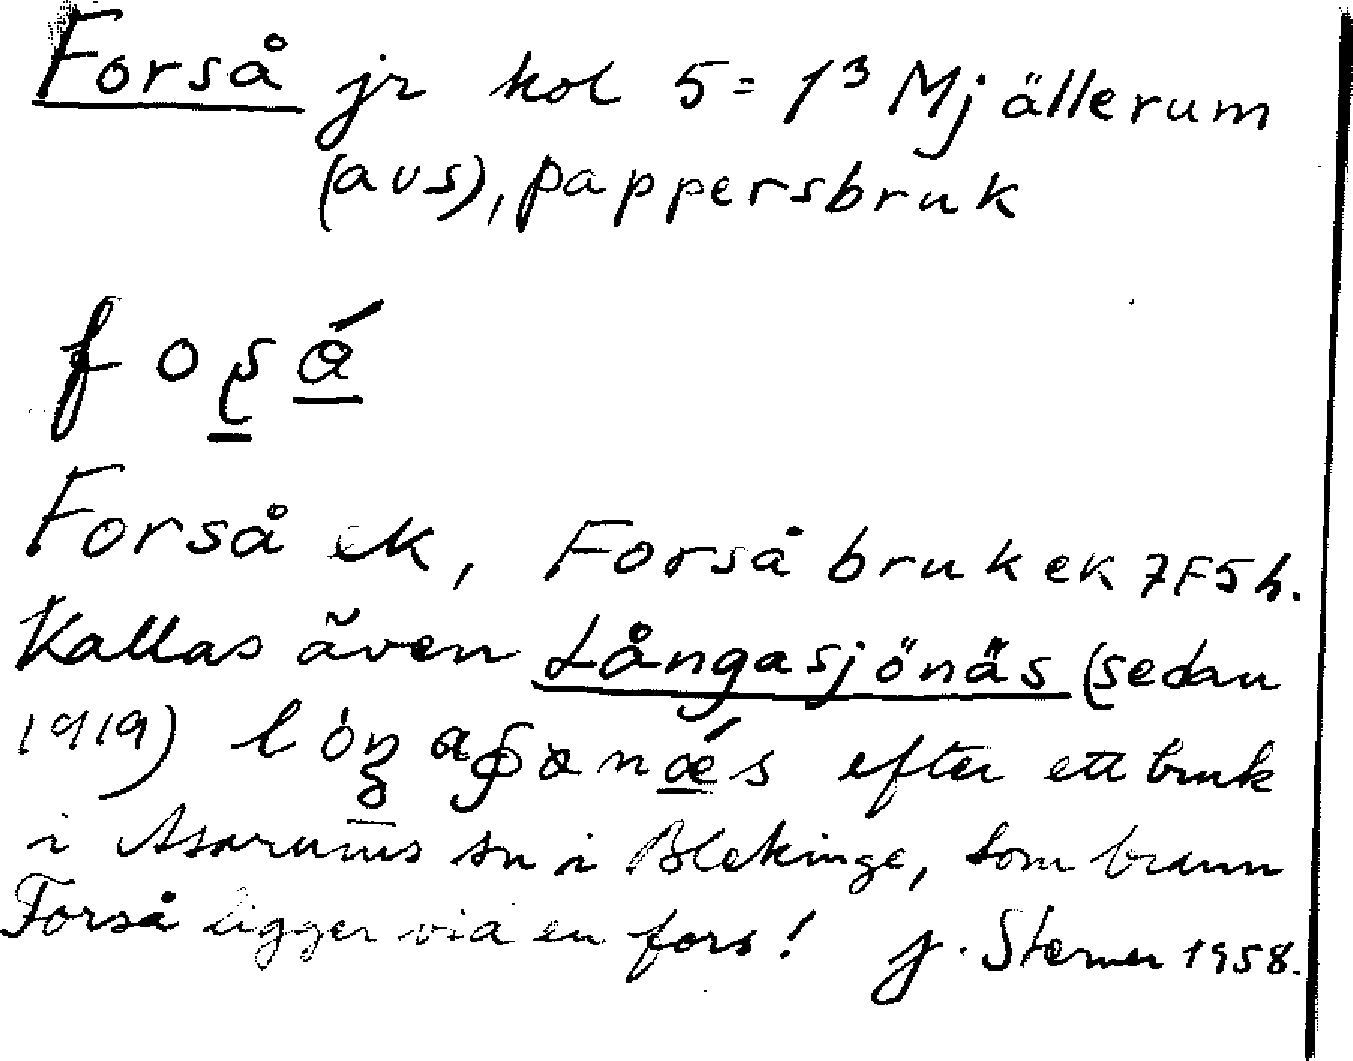 Forså jr kol 5 = 1³ Mjällerum
(avs), pappersbruk
fos å
Forså ek, Forså bruk ek 7F5h.
Kallas även Långasjönäs (sedan
1919) efter ett bruk
i Asarums sn i Blekinge, som brann
Forså ligger vid en fors! J. Sterner 1958.